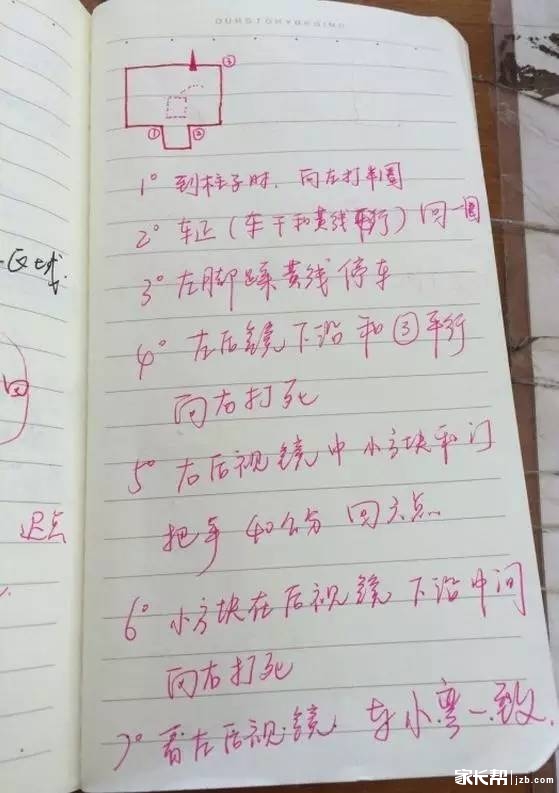 ③
① ②
1° 到柱子时，向左打半圈
2° 车正（车干和黄线平行）回一圈
3° 左脚踩黄线停车
4° 左后镜下沿和③平行
向右打死
5° 右后视镜中小方块和门
把手40公分 回
6° 小方块在后视镜下沿中间
向右打死
7° 看左后视镜 与小弯一致
区域
迟点
家长帮 jzb.com